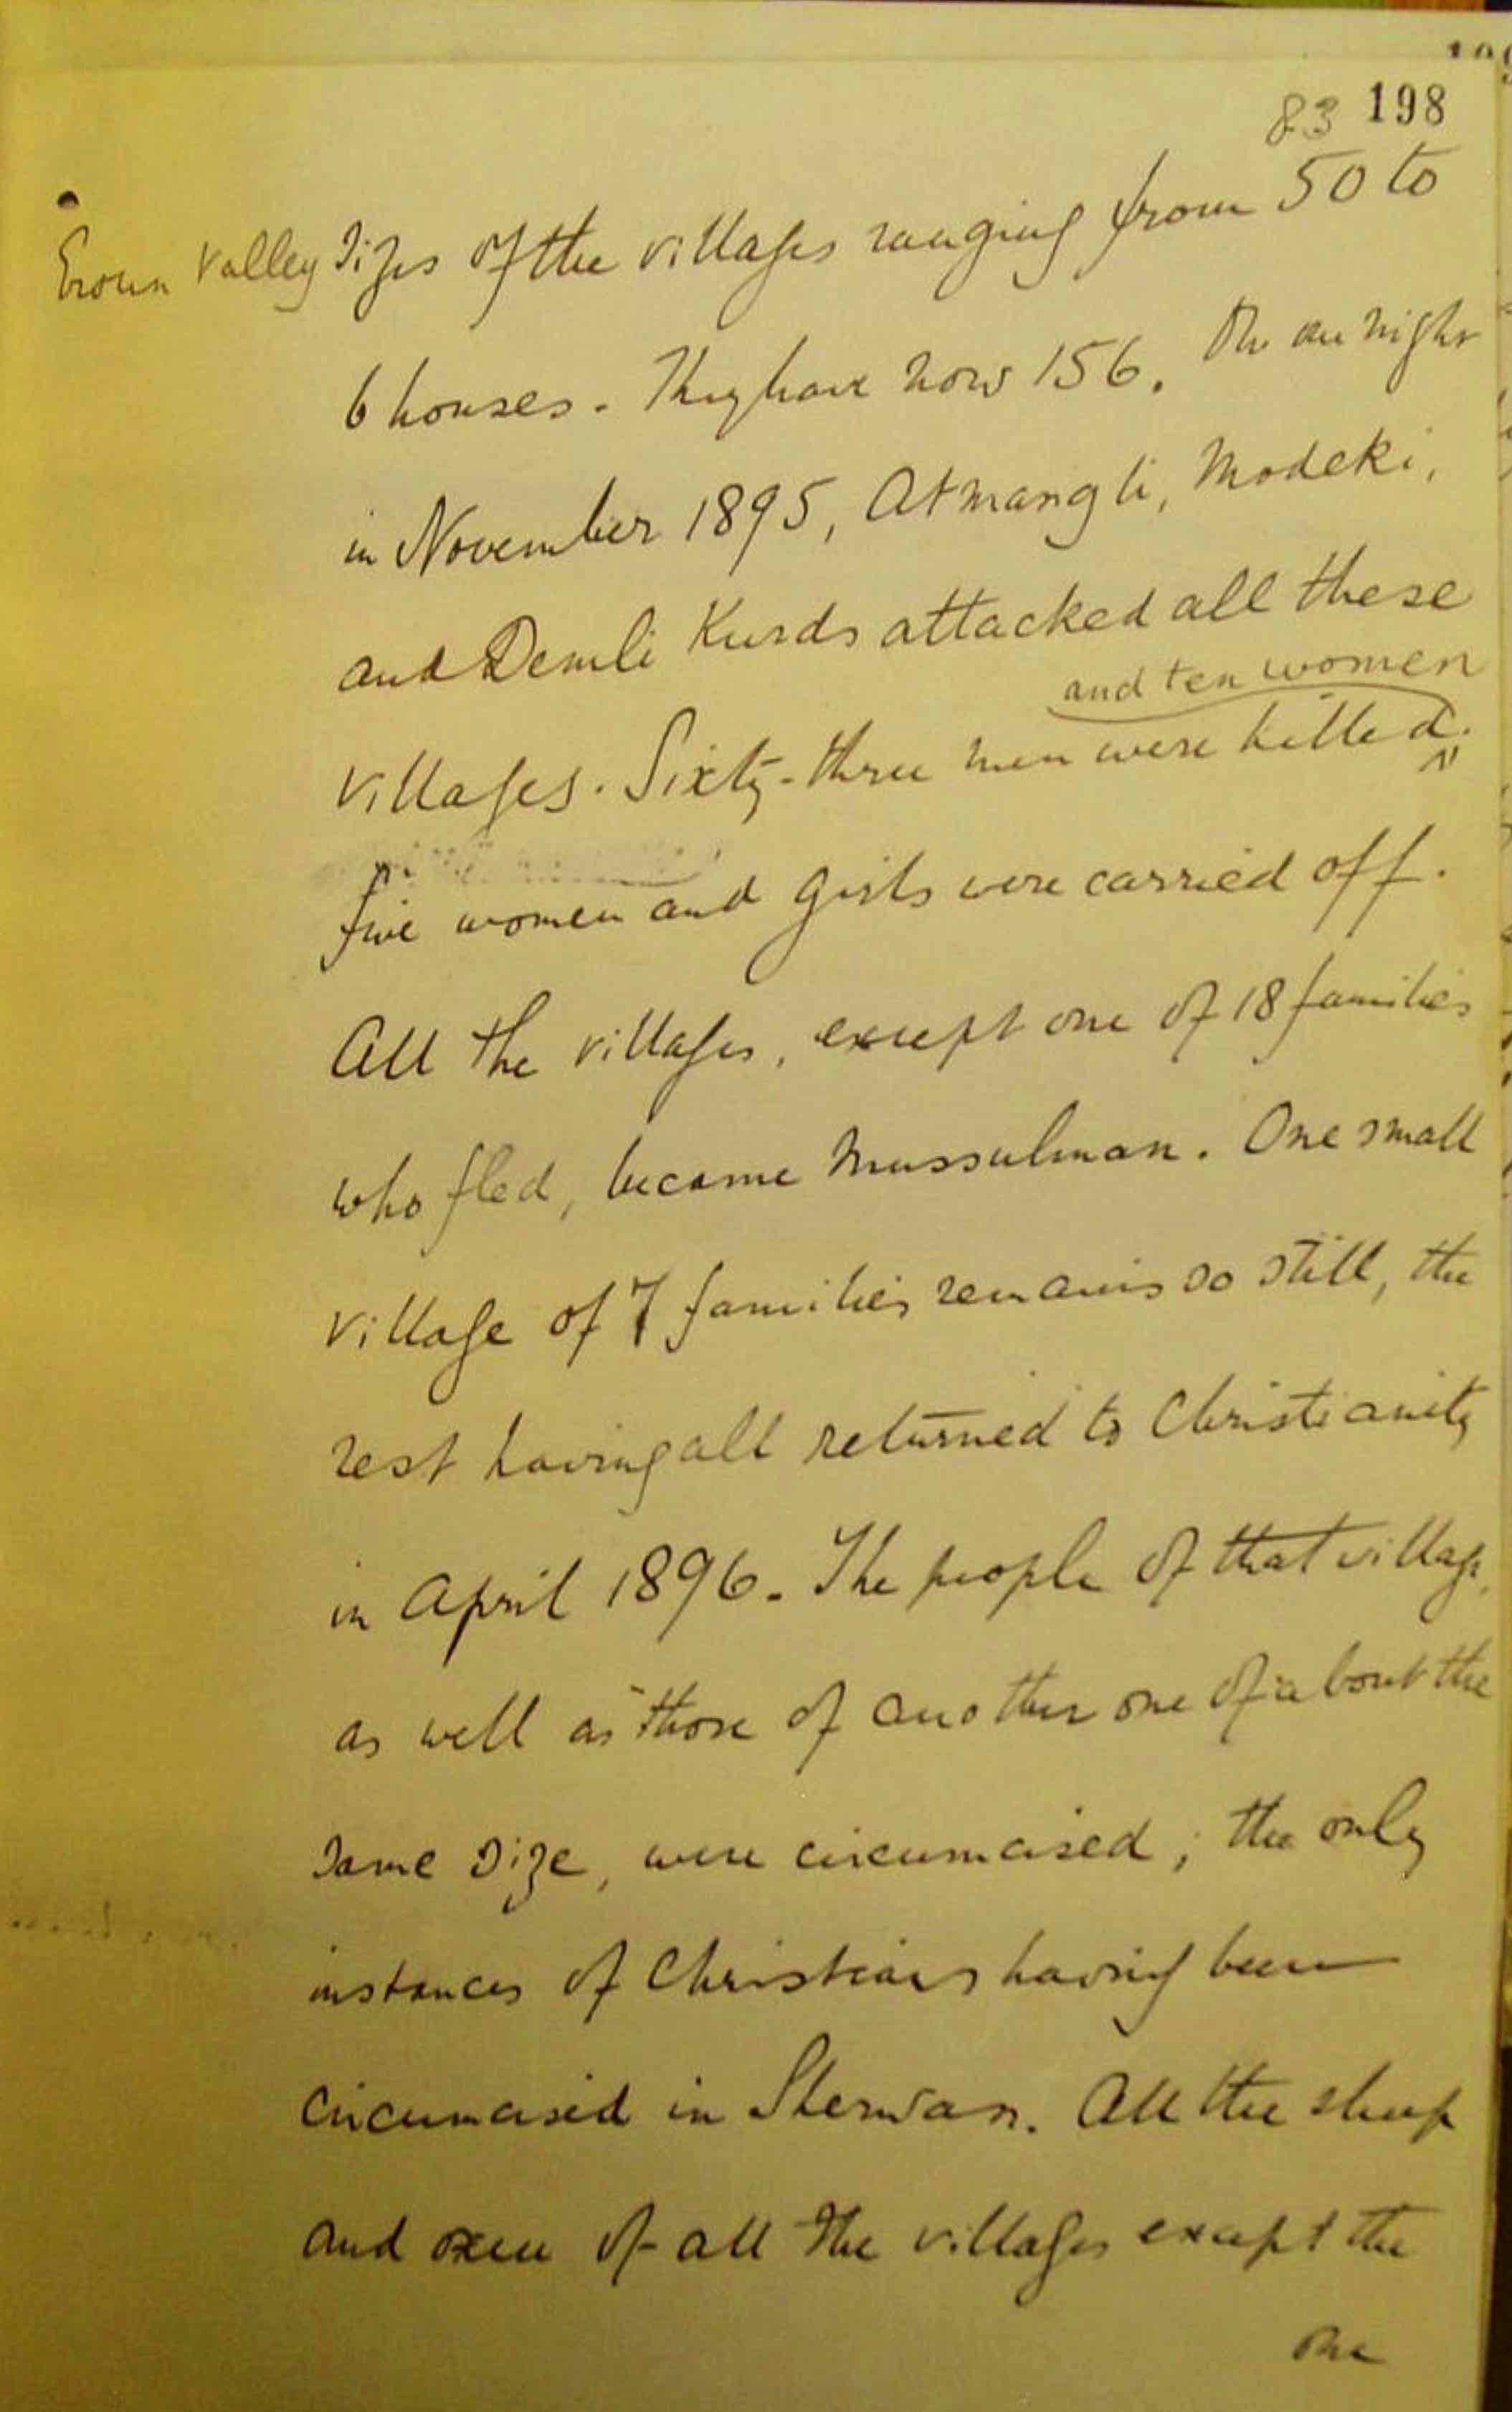 83 198
Eroun Valley
sizes of the villages ranging from 50 to
6 houses. They have now 156. On one night
in November 1895, Atmangli, Modeki,
and Demli Kurds attacked all these
and ten women
villages. Sixty-three men were killed.
Five women and girls were carried off.
All the villages, except one of 18 families
who fled, became Mussulman. One small
village of 7 families remains so still, the
rest having all returned to Christianity
in April 1896. The people of that village,
as well as those of another one of about the
same size, were circumcised; the only
instances of Christians having been
circumcised in Sherwan. All the sheep
and oxen of all the villages except the
one